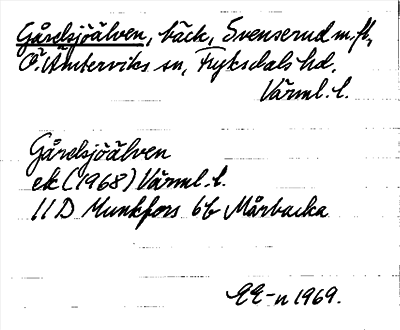 Gårelsjöälven, bäck, Svenserud m.fl.,
Ö. Ämterviks sn, Fryksdals hd.
Värml. l.
Gårelsjöälven
ek (1968) Värml. l.
11D Munkfors 6b Mårbacka
EE-n 1969.